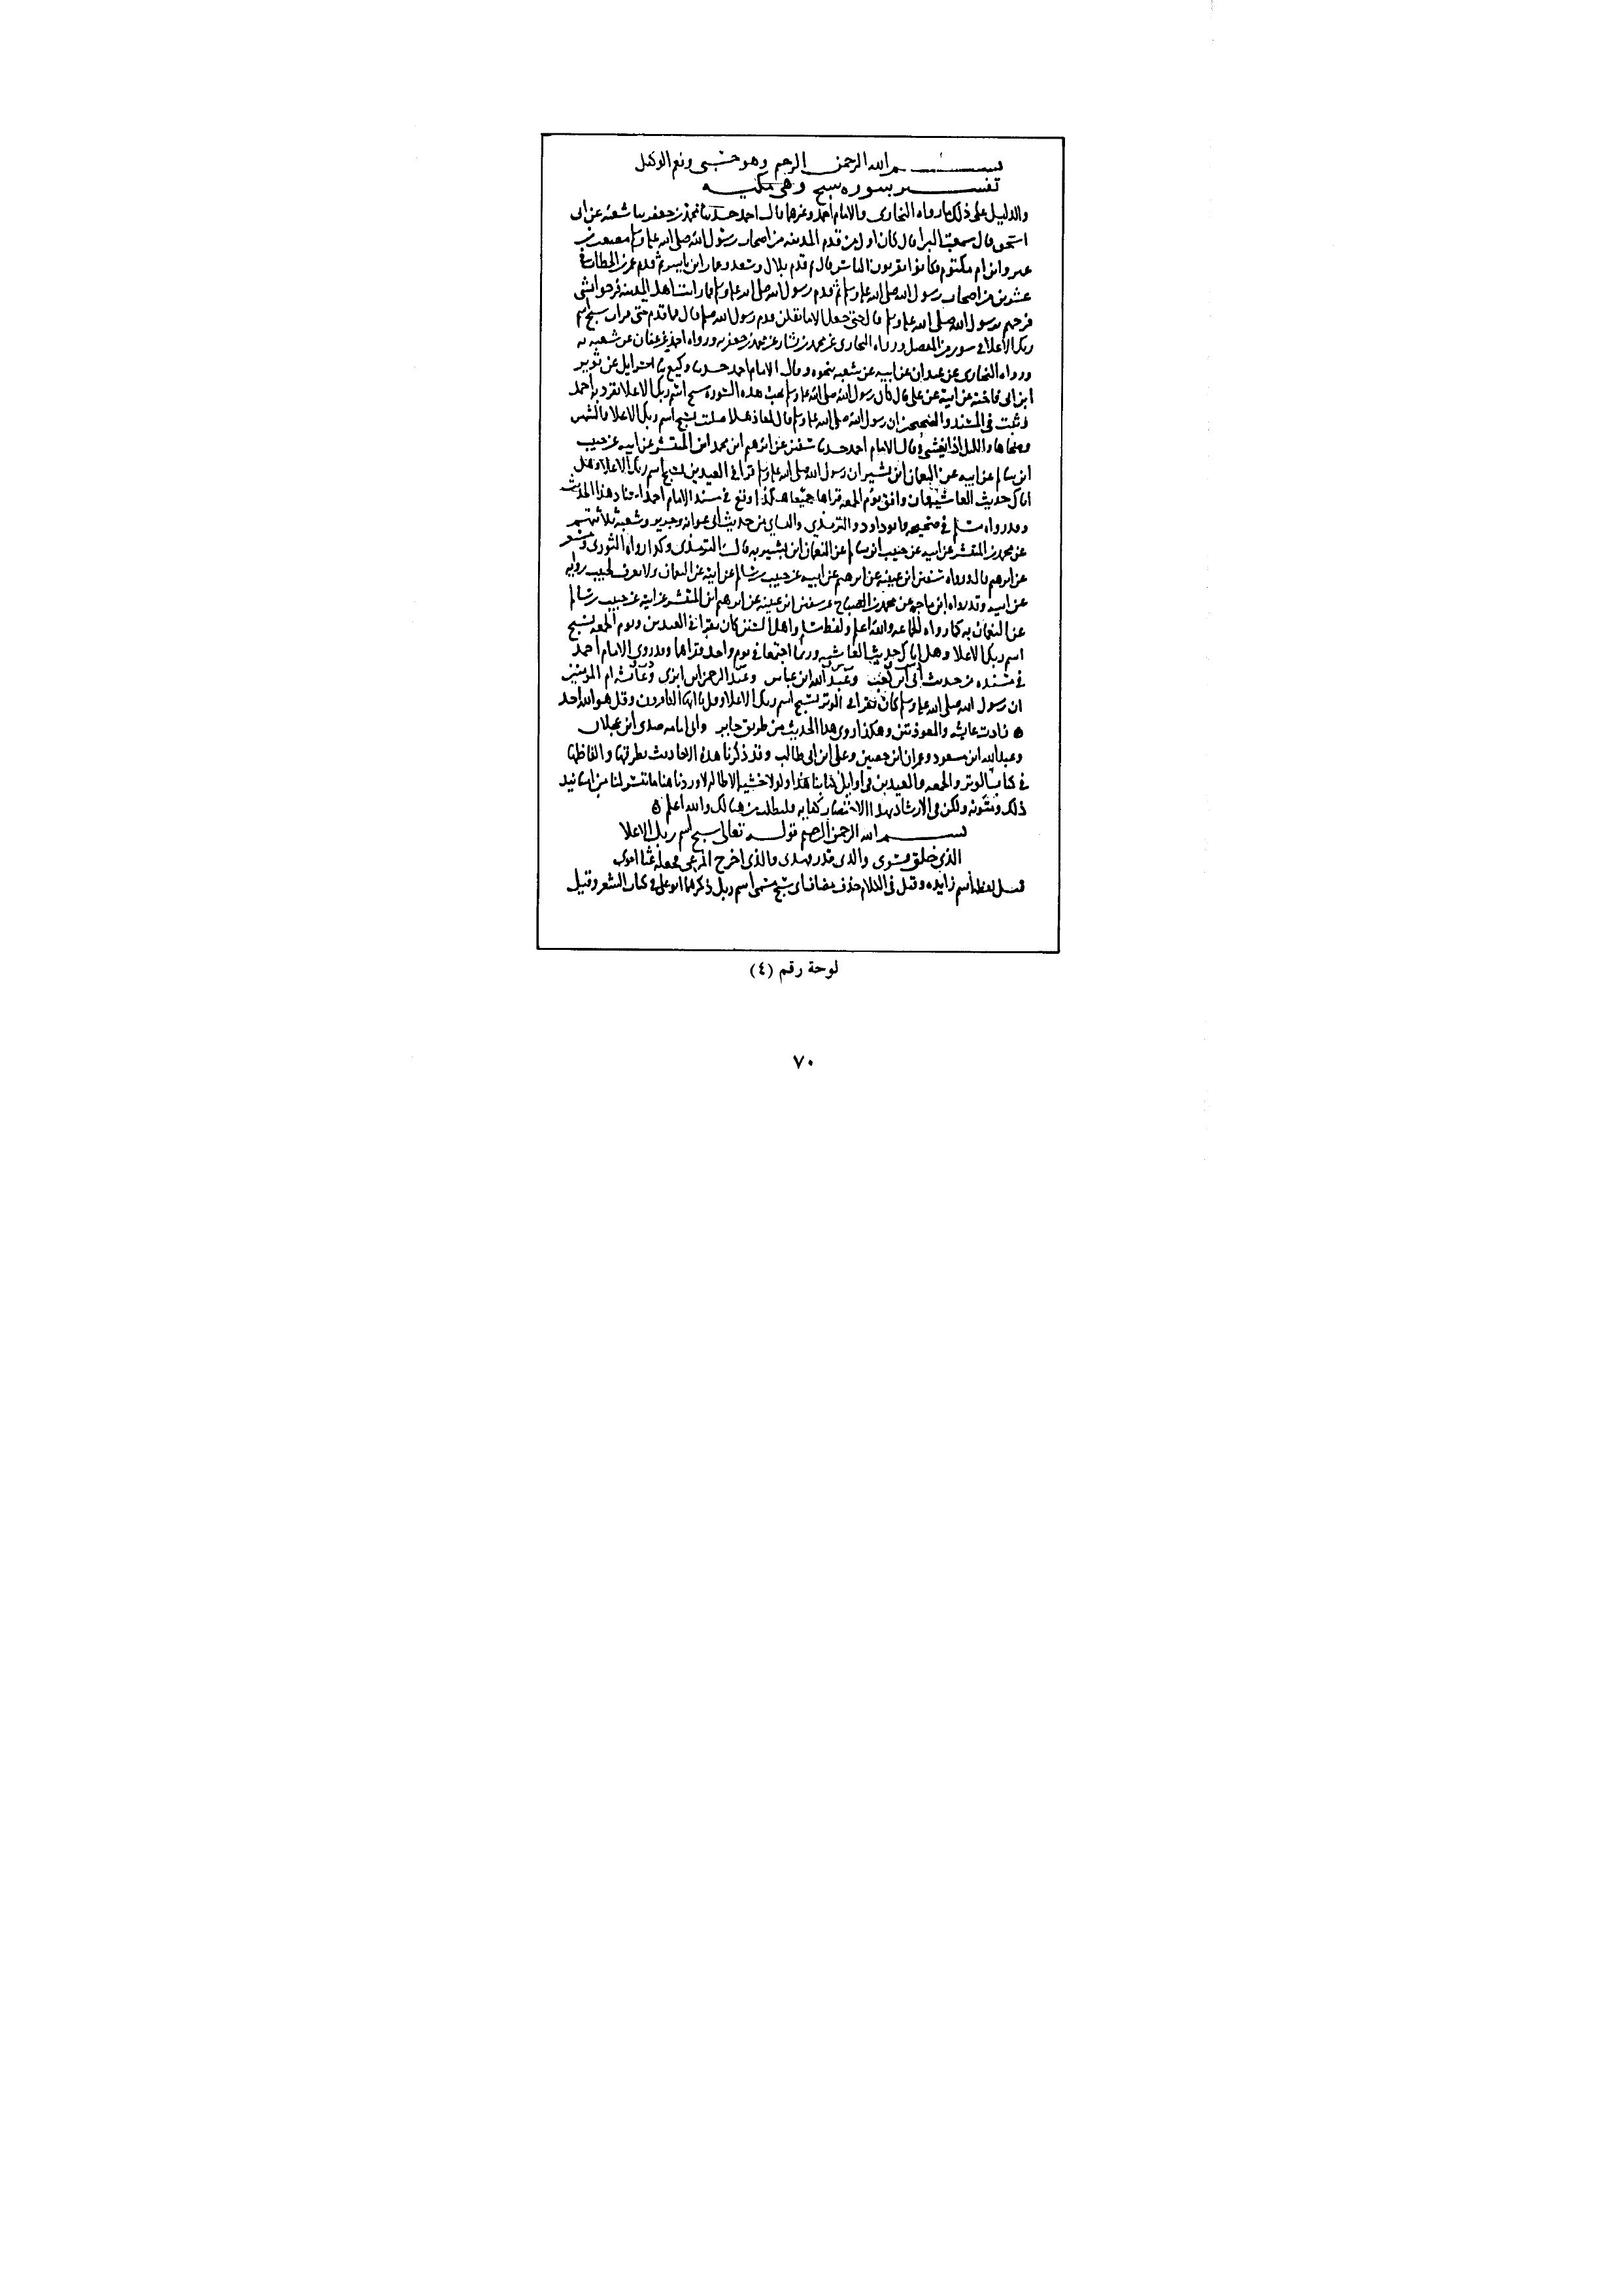 بســـــم الله الرحمن الرحيم وهو حسبي ونعم الوكيل
تفســـير سوره سبح وهي مكيـــه
والدليل على ذلك ما رواه البخاري والامام احمد وغيرهما قال احمد حدثنا محمد بن جعفر ثنا شعبة عن ابي
اسحق قال سمعت البرا قال كان اول من قدم المدينه من اصحاب رسول الله صلى الله عليه وسلم مصعب بن
عمير وابن ام مكتوم فكانوا يقريون الناس قال ثم قدم بلال وسعد وعمار ابن ياسر ثم قدم عمر بن الخطاب في
عشرين من اصحاب رسول الله صلى الله عليه وسلم ثم قدم رسول الله صلى الله عليه وسلم فما رايت اهل المدينه فرحوا بشي
فرحهم برسول الله صلى الله عليه وسلم قال حتى جعل الاما يقلن قدم رسول الله صلعم قال فما قدم حتى قرات سبح اسم
ربك الاعلا في سور من المفصل ورواه البخاري عن محمد بن بشار عن محمد بن جعفر به ورواه احمد عن عفان عن شعبه به
ورواه البخاري عن عبدان عن ابيه عن شعبه بنحوه وقال الامام احمد حدثنا وكيع ثنا اسرايل عن ثوير
ابن ابي فاخته عن ابيه عن علي قال كان رسول الله صلى الله عليه وسلم يحب هذه السورة سبح اسم ربك الاعلا تفرد به احمد
وثبت في المسند والصحيحين ان رسول الله صلى الله عليه وسلم قال لمعاذ هلا صليت بسبح اسم ربك الاعلا والشمس
وضحاها والليل اذا يغشى وقال الامام احمد حدثنا سفين عن ابرهيم ابن محمد ابن المنتشر عن ابيه عن حبيب
ابن سالم عن ابيه عن النعمان ابن بشير ان رسول الله صلى الله عليه وسلم قرا في العيدين بسبح اسم ربك الاعلا وهل
اتاك حديث الغاشيه وان وافق يوم الجمعه قراها جميعا هكذا وقع في مسند الامام احمد اسناد هذا الحديث
وقد رواه مسلم في صحيحه وابو داود والترمذي والنساي من حديث ابي عوانه وجرير وشعبة ثلاثتهم
عن محمد بن المنتشر عن ابيه عن حبيب ابن سالم عن النعمان ابن بشير به قال الترمذي وكذا رواه الثوري ومسعر
عن ابرهيم قال ورواه سفين ابن عيينه عن ابرهيم عن ابيه عن حبيب بن سالم عن ابيه عن النعمان ولا يعرف لحبيب رواية
عن ابيه وقد رواه ابن ماجه عن محمد بن الصباح عن سفين ابن عيينه عن ابرهيم ابن المنتشر عن ابيه عن حبيب بن سالم
عن النعمان به كما رواه الجماعه والله اعلم ولفظ مسلم واهل السنن كان يقرا في العيدين ويوم الجمعه بسبح
اسم ربك الاعلا وهل اتاك حديث الغاشيه وربما اجتمعا في يوم واحد فقراهما وقد روى الامام احمد
في مسنده من حديث ابي ابن كعب وعبد الله ابن عباس وعبد الرحمن ابن ابزى وعائشه ام المومنين
ان رسول الله صلى الله عليه وسلم كان يقرا في الوتر بسبح اسم ربك الاعلا وقل يا ايها الكافرون وقل هو الله احد
زادت عايشه والمعوذتين وهكذا روى هذا الحديث من طريق جابر وابي امامه صدى ابن عجلان
وعبد الله ابن مسعود وعمران ابن حصين وعلي ابن ابي طالب وقد ذكرنا هذه الاحاديث بطرقها والفاظها
في كتاب الوتر والجمعه والعيدين في اوايل كتابنا هذا ولولا خشية الاطاله لاوردنا هنا ما تيسر لنا من اسانيد
ذلك ومتونه ولكن في الارشاد بهذا الاختصار كفايه فليطلب من هنالك والله اعلم
بســـم الله الرحمن الرحيم قولـــه تعالى سبح اسم ربك الاعلا
الذي خلق فسوى والذي قدر فهدى والذي اخرج المرعى فجعله غثا احوى
قيل لفظه اسم زايده وقيل في الكلام حذف مضاف اي سبح مسمى اسم ربك ذكرهما ابو علي في كتاب الشعر وقيل
لوحة رقم (٤)
٧٠